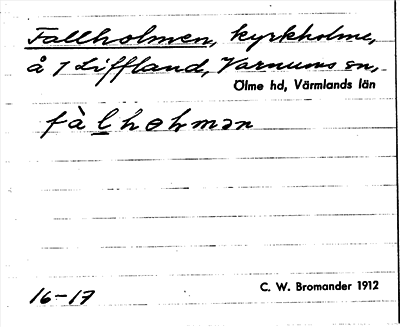 Fallholmen, kyrkholme,
å 1 Liffland, Varnums sn,
Ölme hd, Värmlands län
fàlhɵhmən
16-17
C. W. Bromander 1912